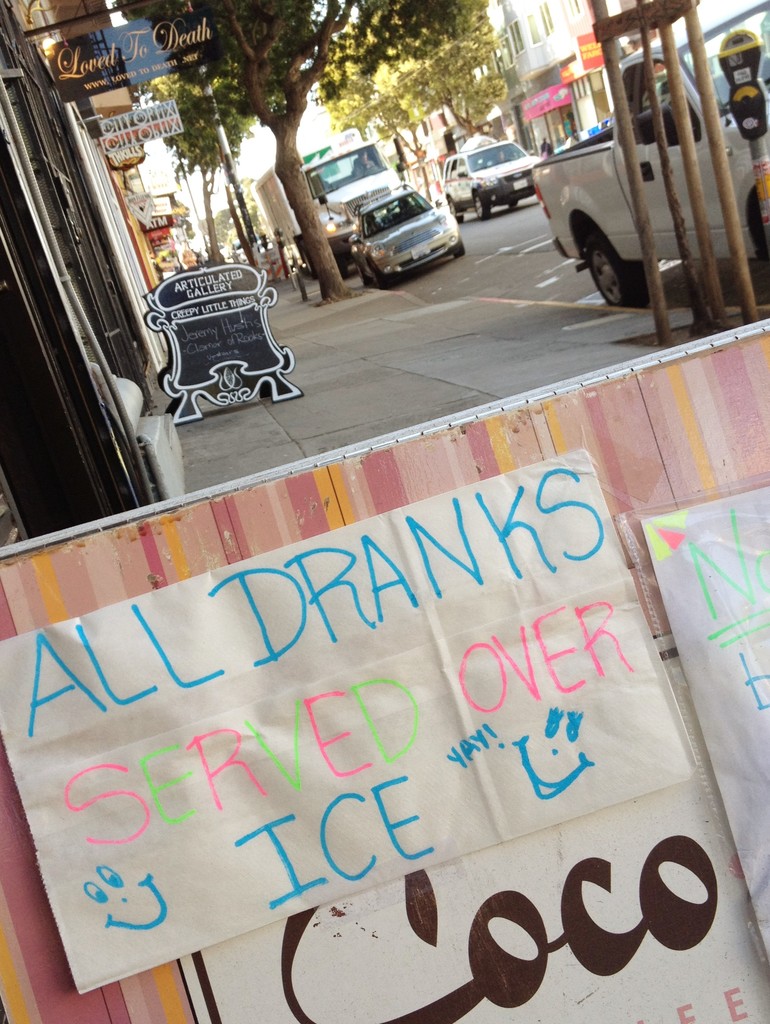 Loved To Death
WWW. LOVED TO DEATH .NET
ARTICULATED
GALLERY
CREEPY LITTLE THINGS
Jeremy Hush's
ATM
ALL DRANKS
SERVED OVER
ICE
YAY!
Coco